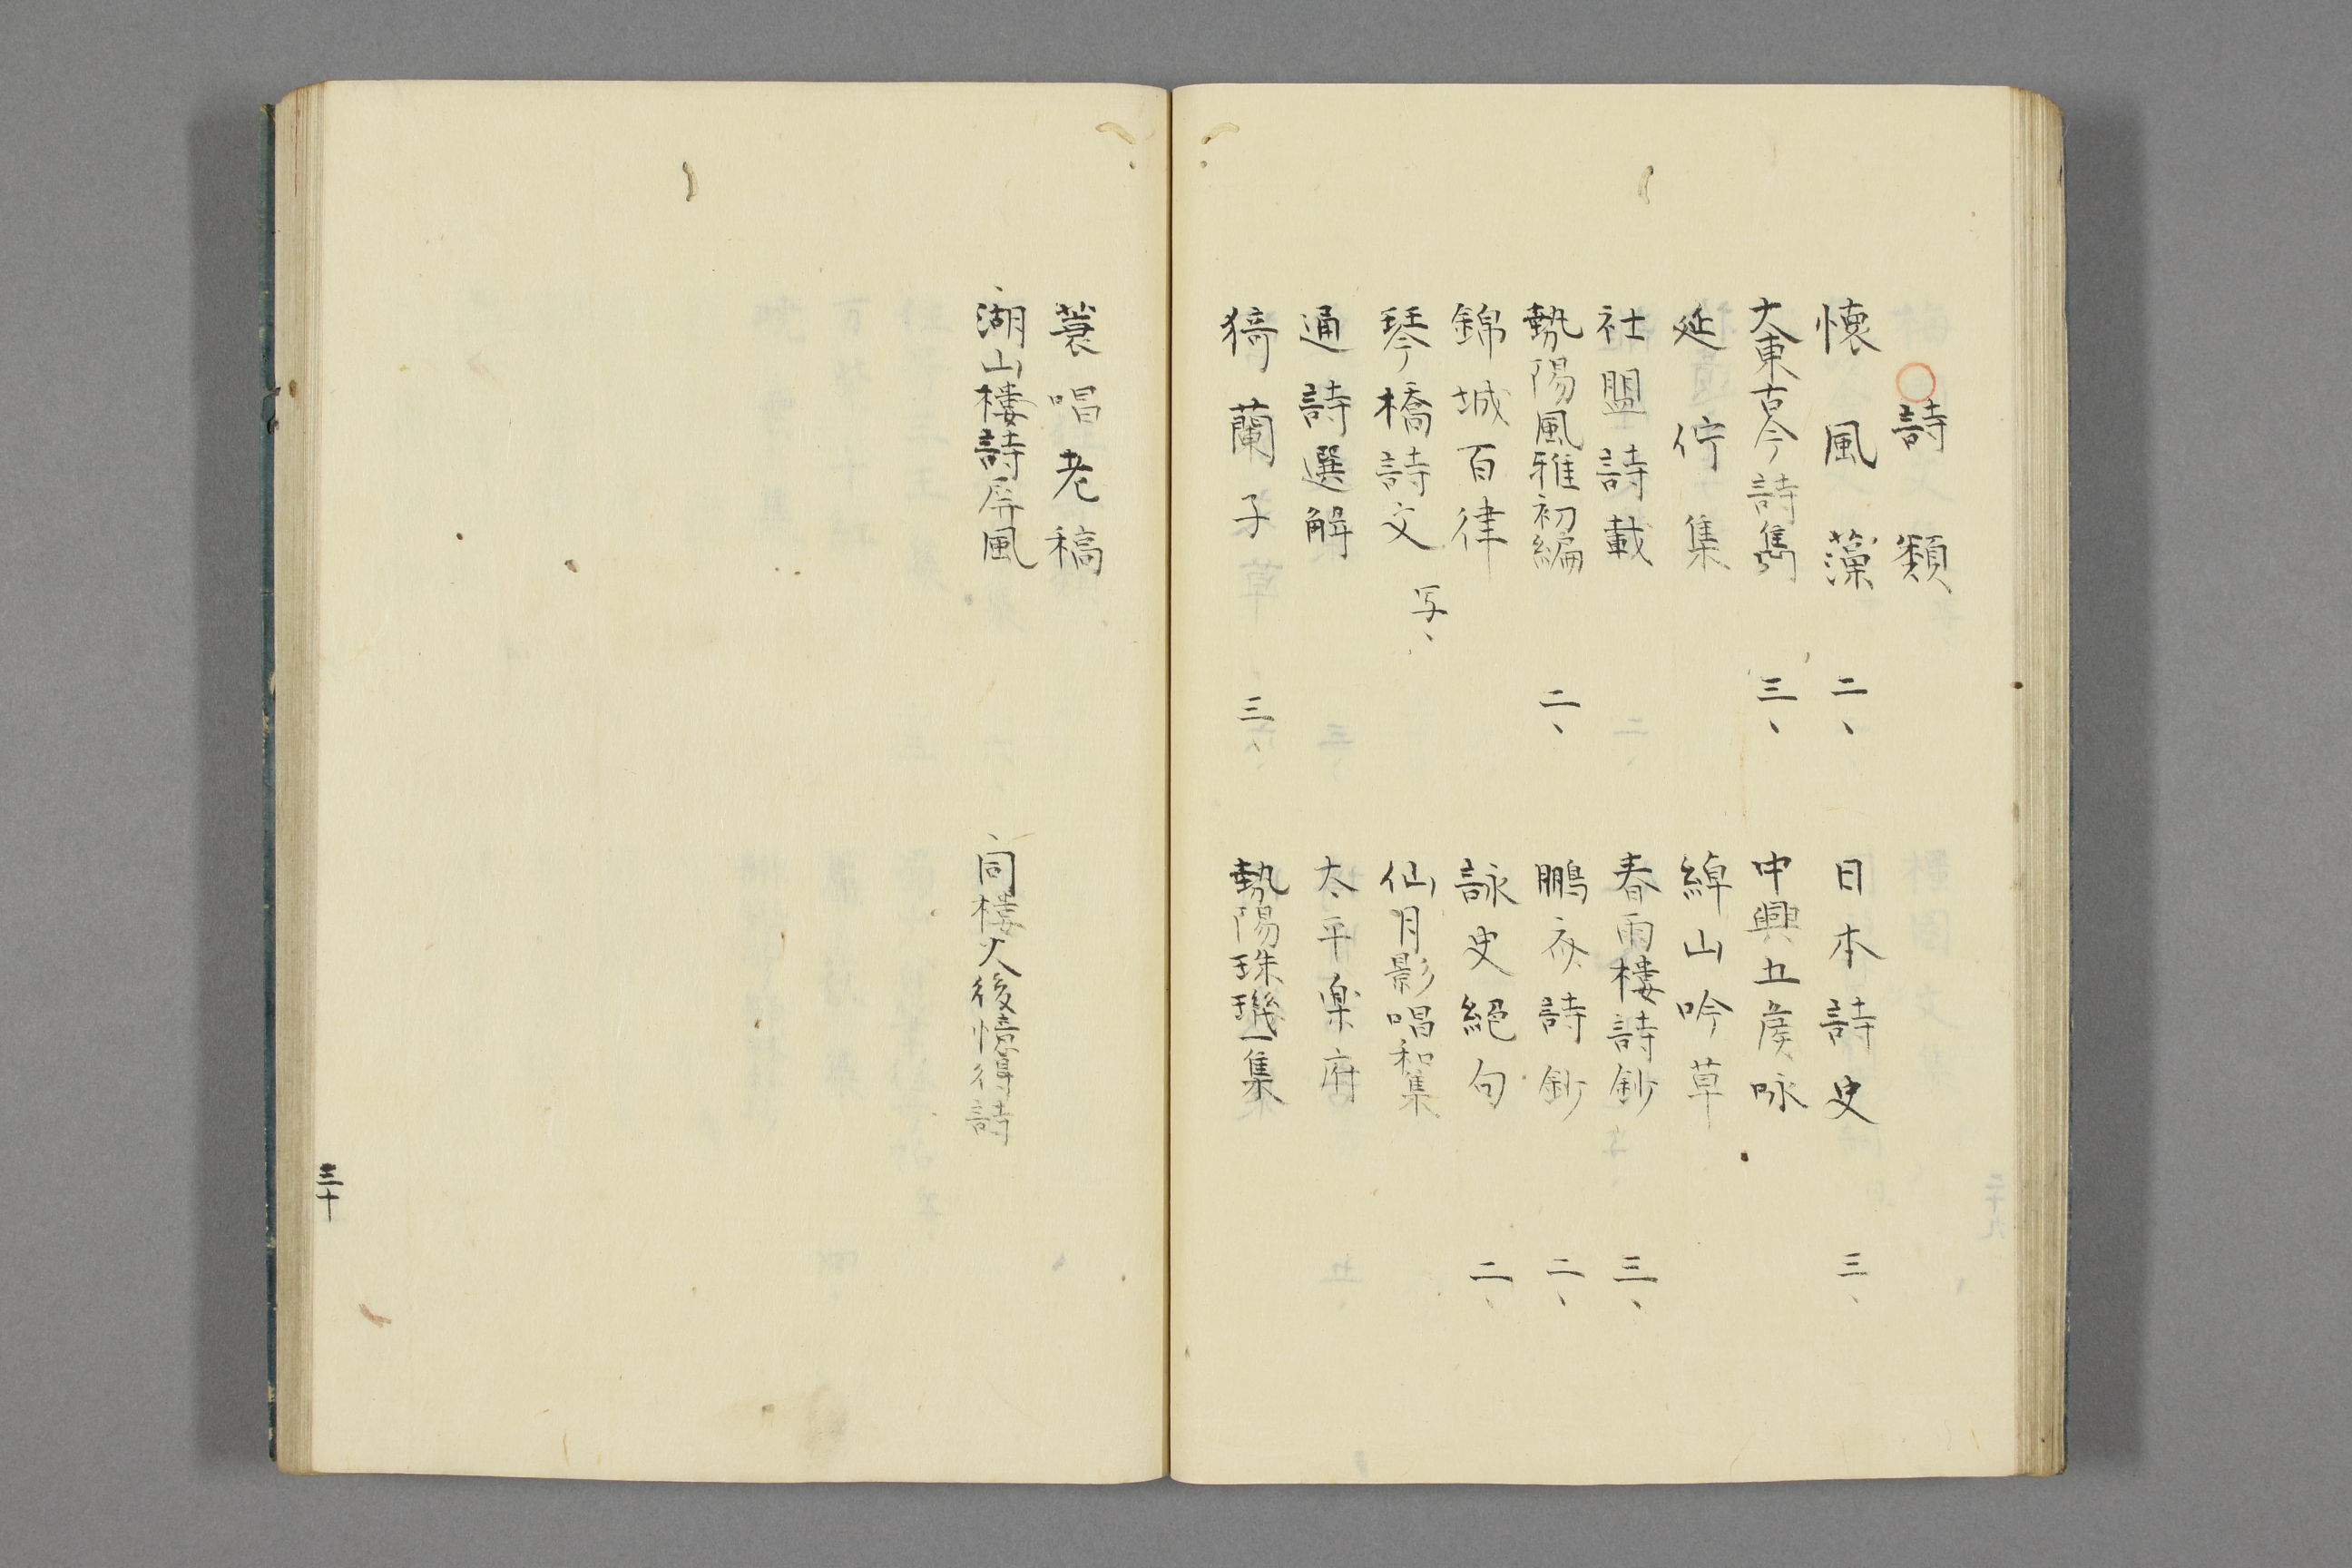 ○詩類
懐風藻 二、
日本詩史 三、
大東古今詩雋 三、
中興五侯咏
延佇集
綽山吟草
社盟詩載
春雨樓詩鈔 三、
勢陽風雅初編 二、
鵬斎詩鈔 二、
錦城百律
詠史絕句 二、
琴橋詩文 写、
仙月影唱和集
通詩選解
太平楽府
猗蘭子 三、
勢陽珠璣一集
蓑唱老稿
湖山樓詩屏風
同樓火後憶得詩
三十